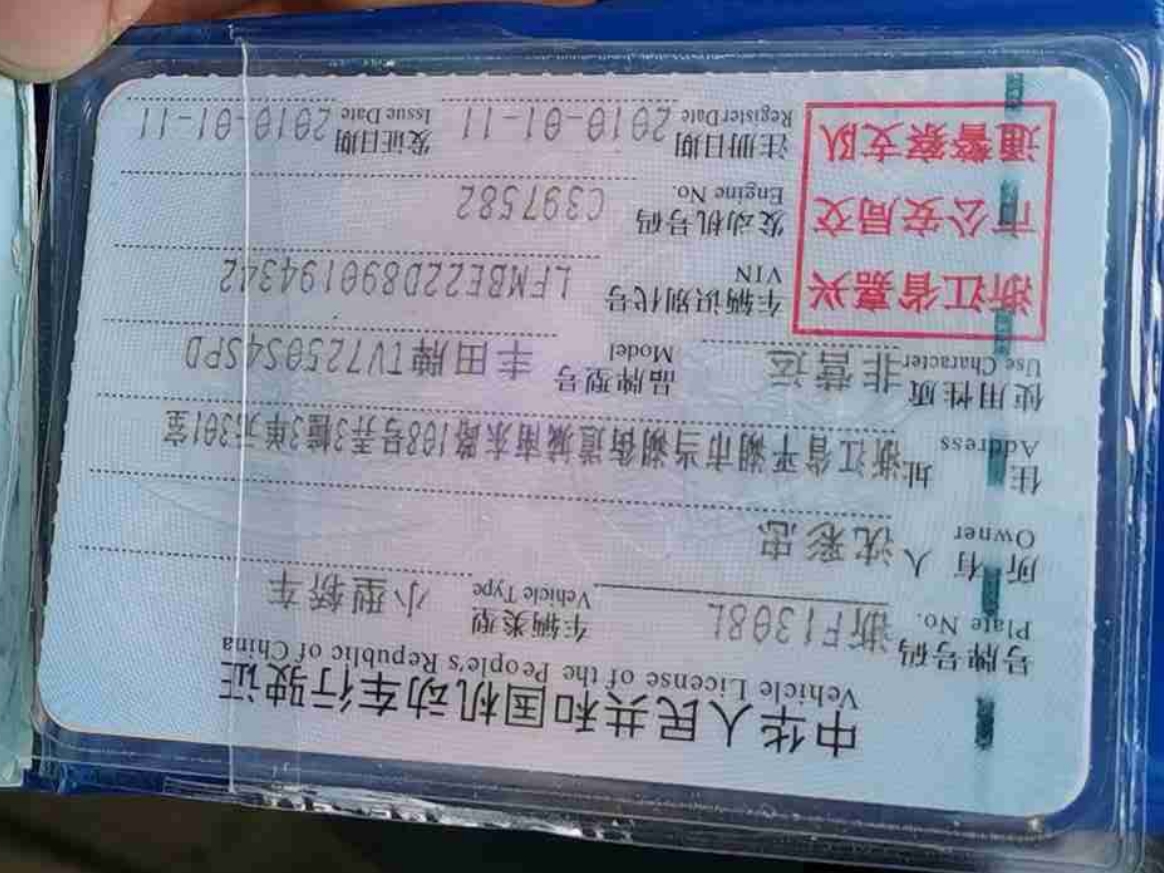 中华人民共和国机动车行驶证
Vehicle License of the People's Republic of China
号牌号码 浙F1308L 车辆类型 小型轿车
Plate No. Vehicle Type
所有人 沈彩忠
Owner
住址 浙江省平湖市当湖街道城南东路108号弄3幢3单元301室
Address
使用性质 非营运 品牌型号 丰田牌TV7250S4SPD
Use Character Model
浙江省嘉兴
市公安局交
通警察支队
车辆识别代号 LFMBE22D890194342
VIN
发动机号码 C397582
Engine No.
注册日期 2010-01-11 发证日期 2010-01-11
Register Date Issue Date